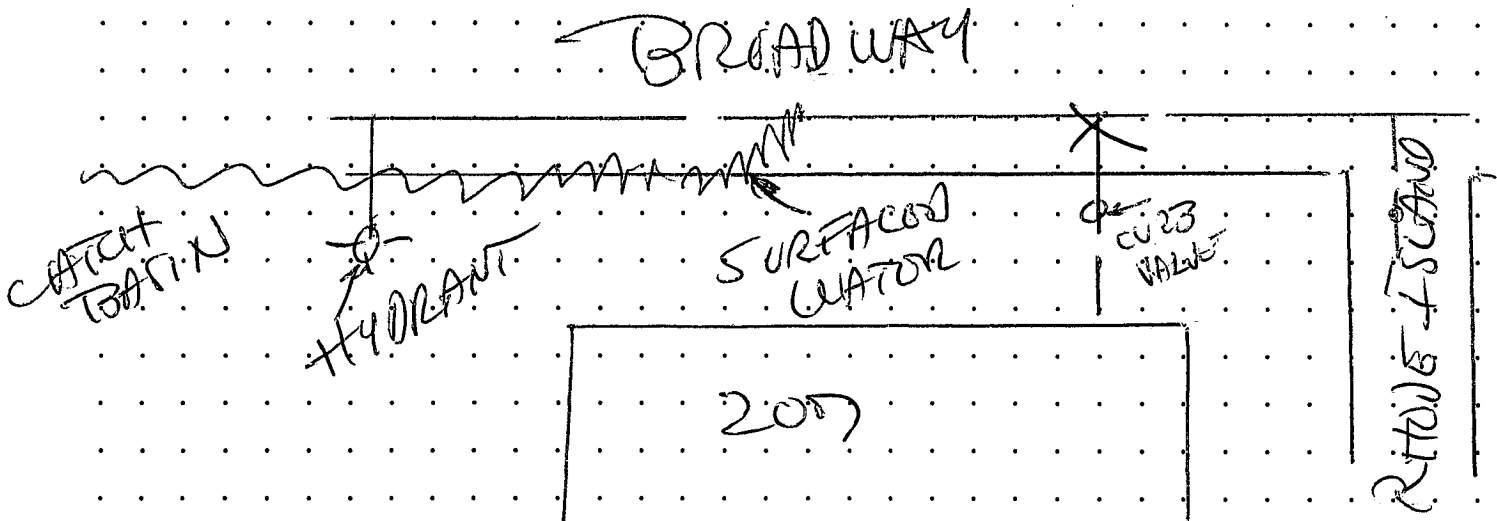 BROADWAY
CATCH
BASIN
HYDRANT
SURFACED
WATOR
CURB
VALVE
RHODE ISLAND